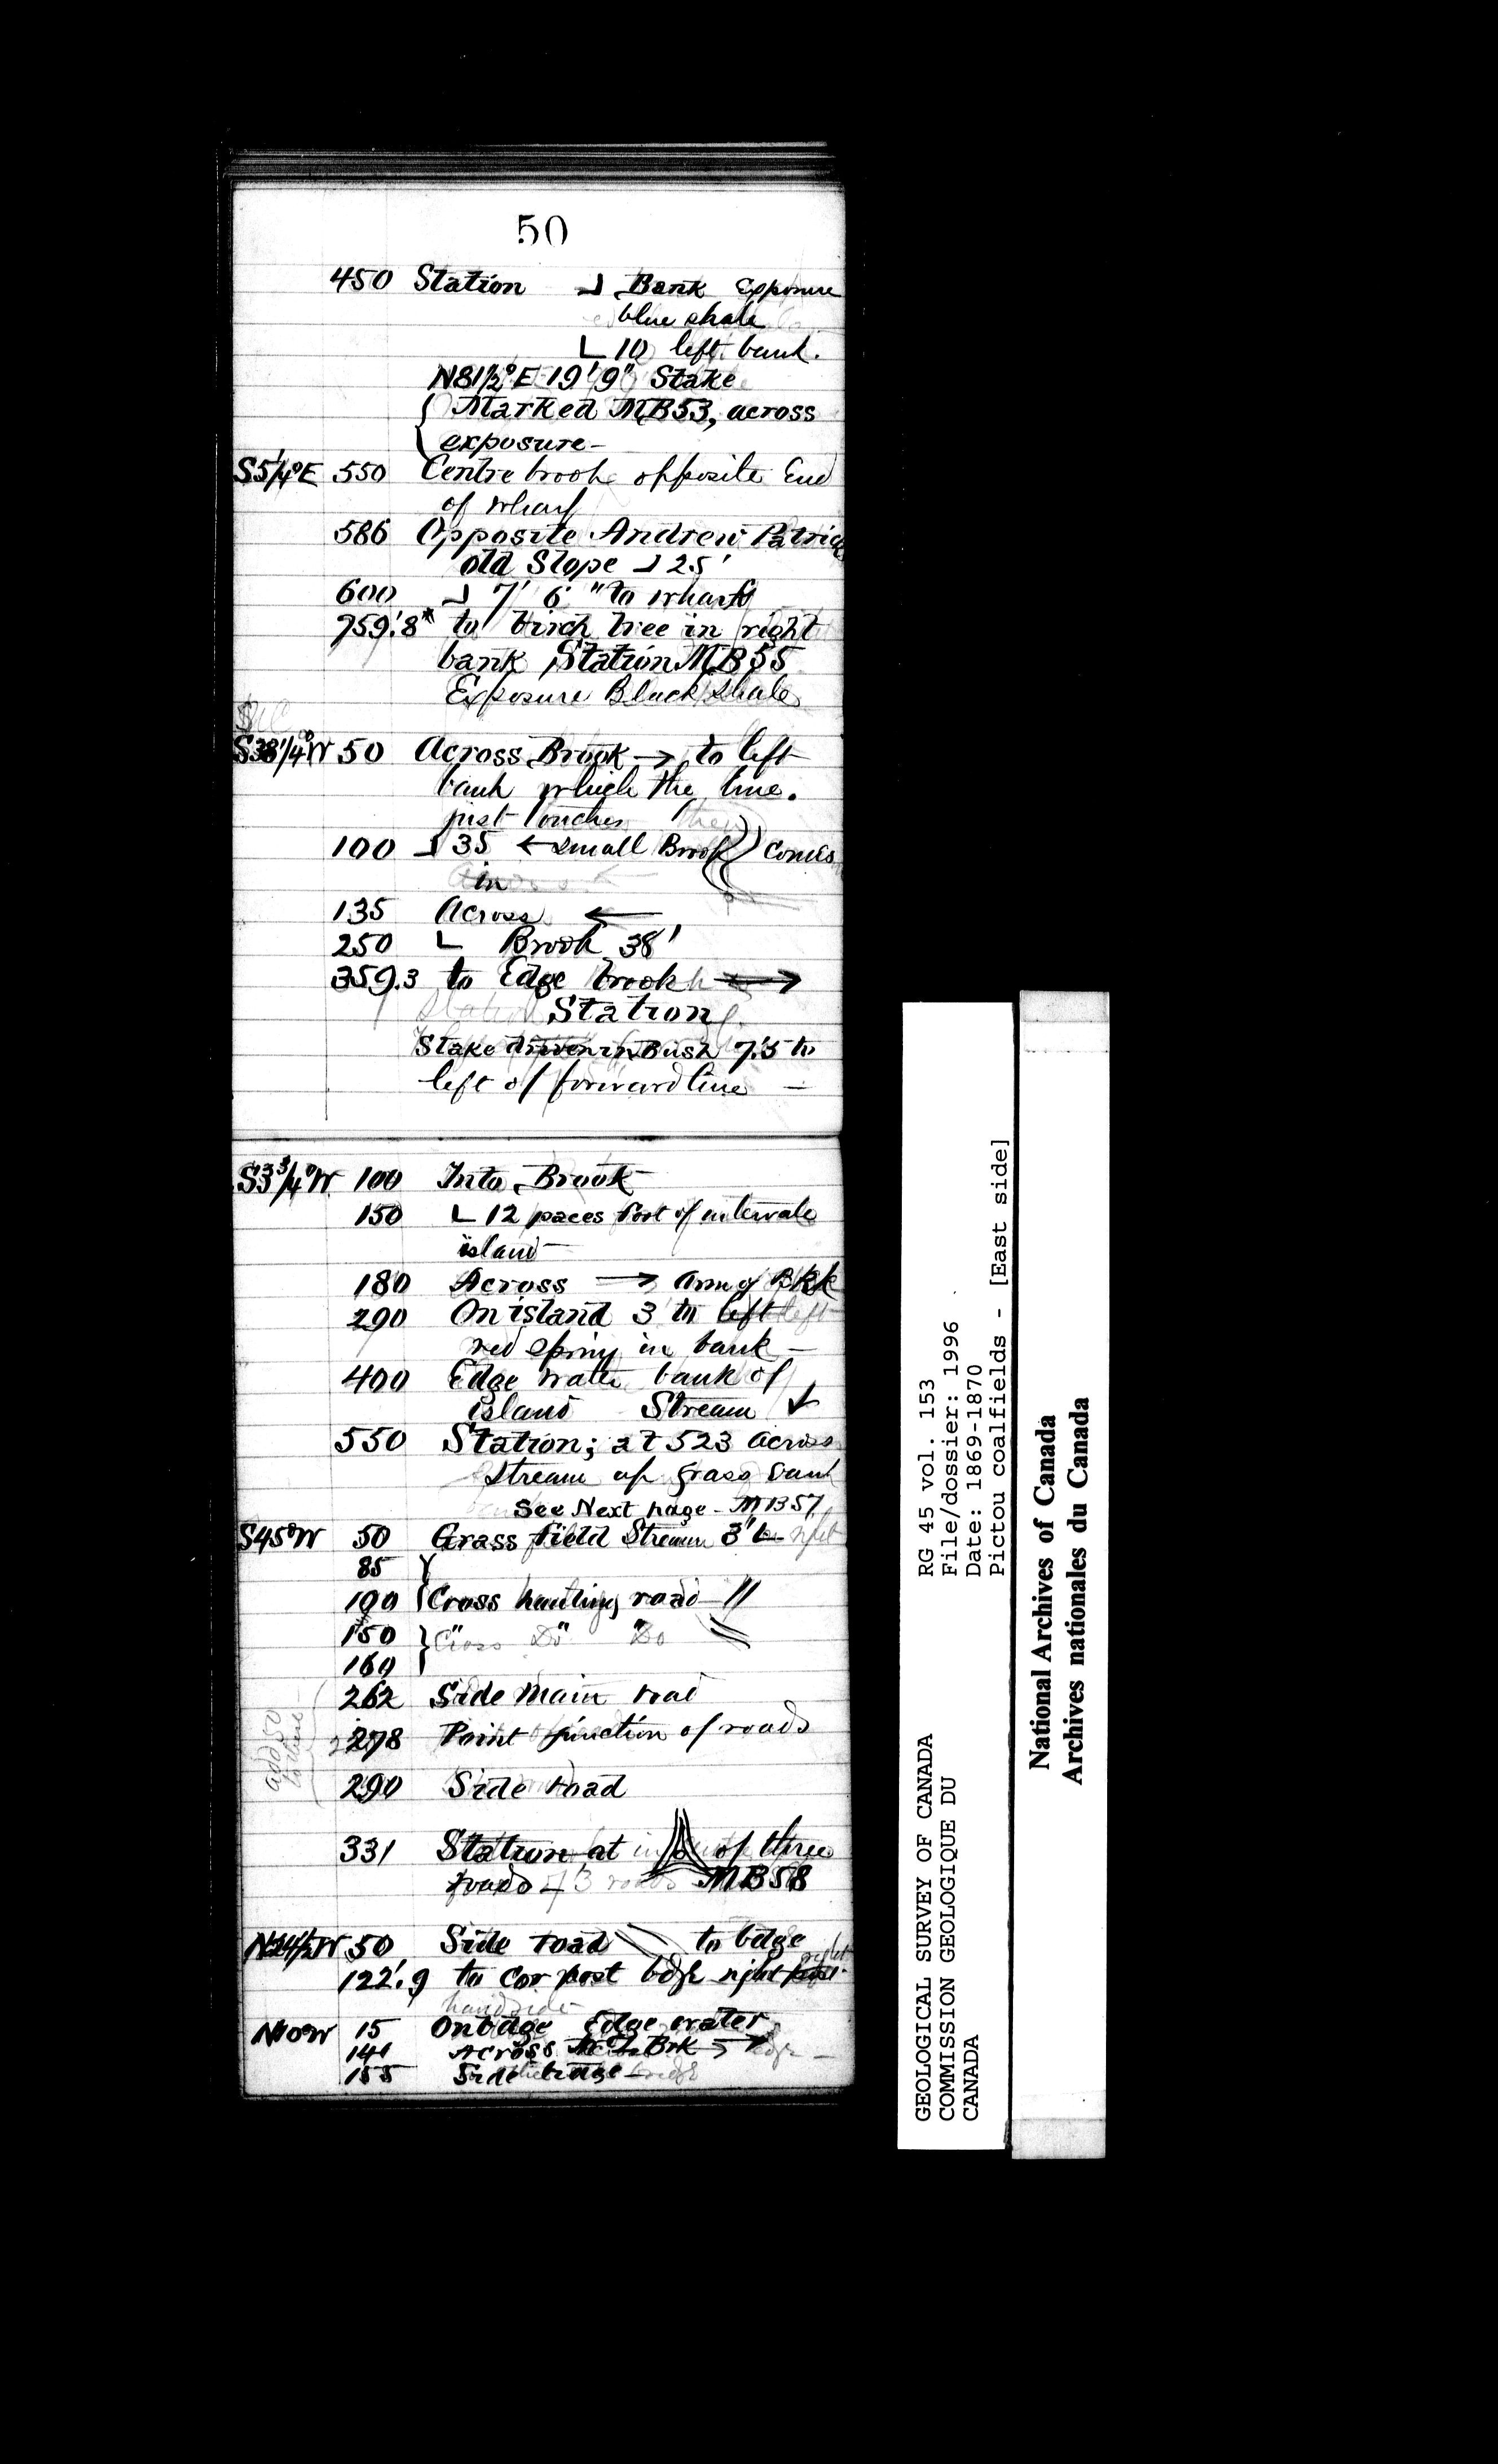 50
450 Station ⅃ Bank Exposure
blue shale
L 10 left bank.
N81½°E 19'9" Stake
{ Marked MB53, across
exposure -
S5¼°E 550 Centre brook opposite End
of wharf
586 Opposite Andrew Patrick
old Slope ⅃ 25'
600 ⅃ 7' 6" to wharf
759.'8" to birch tree in right
bank, Station MB55
Exposure Black shale
S38¼°W 50 Across Brook → to left
bank which the line.
just touches
100 ⅃ 35 ← small Brook comes
in
135 Across ←
250 L Brook 38'
359.3 to Edge brook →
Station
Stake driven in Bush 7.'5 to
left of forward line -
S33¾°W 100 Into Brook
150 L 12 paces foot of intervale
island
180 Across → arm of Brk
290 On island 3 to left
red spring in bank -
400 Edge water bank of
island Stream ↓
550 Station; at 523 across
stream up grass bank
See Next page - MB57
S45°W 50 Grass field Stream 3' L
85 }
190 { Cross hauling road //
150 } Cross Do Do \\
160
262 Side Main road
278 Point junction of roads
add 50
to these
290 Side road
331 Station at of three
roads MB58
N24½W 50 Side road \\ to bdge
122'.9 to cor post bdge right
hand side
N10°W 15 On bdge Edge water
141 Across Brk →
155 Side bridge
GEOLOGICAL SURVEY OF CANADA
COMMISSION GEOLOGIQUE DU
CANADA
RG 45 vol. 153
File/dossier: 1996
Date: 1869-1870
Pictou coalfields - [East side]
National Archives of Canada
Archives nationales du Canada